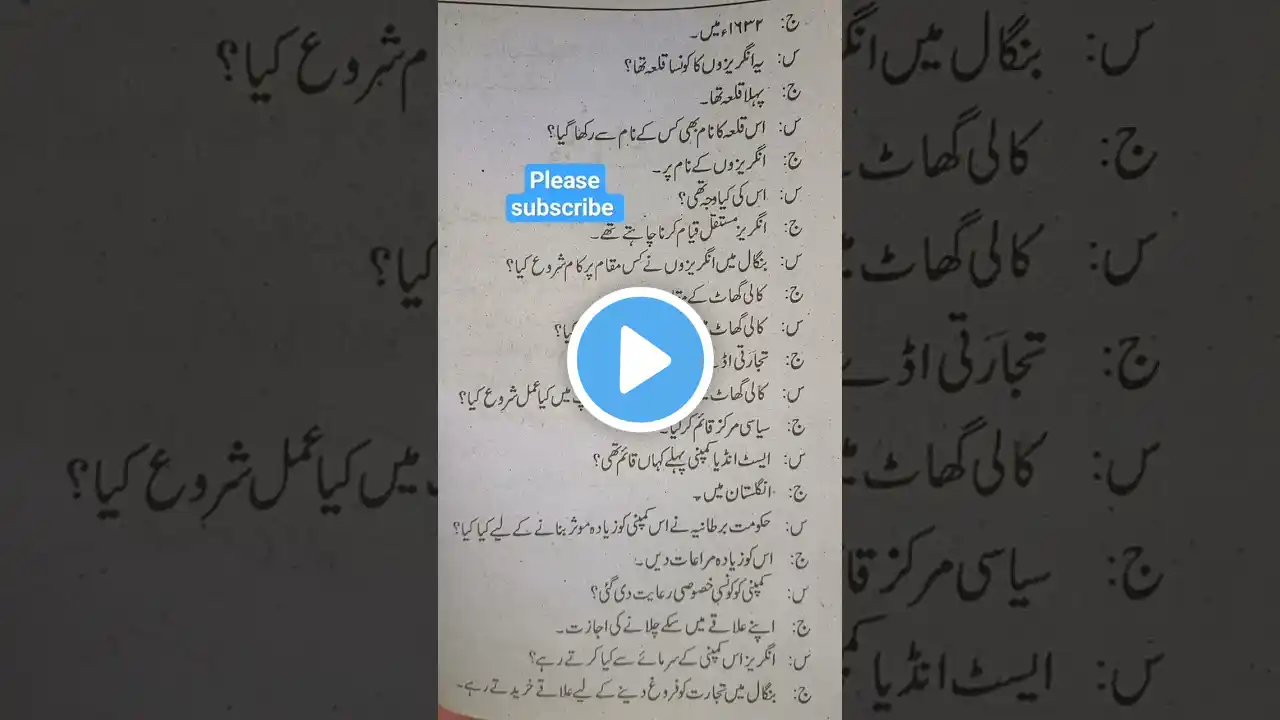 ج: ۱۶۳۲ء میں۔
س: یہ انگریزوں کا کونسا قلعہ تھا؟
ج: پہلا قلعہ تھا۔
س: اس قلعہ کا نام بھی کس کے نام سے رکھا گیا؟
ج: انگریزوں کے نام پر۔
س: اس کی کیا وجہ تھی؟
ج: انگریز مستقل قیام کرنا چاہتے تھے۔
س: بنگال میں انگریزوں نے کس مقام پر کام شروع کیا؟
ج: کالی گھاٹ کے
س: کالی گھاٹ کیا؟
ج: تجارَتی اڈے
س: کالی گھاٹ میں کیا عمل شروع کیا؟
ج: سیاسی مرکز قائم کرلیا۔
س: ایسٹ انڈیا کمپنی پہلے کہاں قائم تھی؟
ج: انگلستان میں۔
س: حکومت برطانیہ نے اس کمپنی کو زیادہ موثر بنانے کے لیے کیا کیا؟
ج: اس کو زیادہ مراعات دیں۔
س: کمپنی کو کونسی خصوصی رعایت دی گئی؟
ج: اپنے علاقے میں سکے چلانے کی اجازت۔
س: انگریز اس کمپنی کے سرمائے سے کیا کرتے رہے؟
ج: بنگال میں تجارت کو فروغ دینے کے لیے علاقے خریدتے رہے۔
Please
subscribe